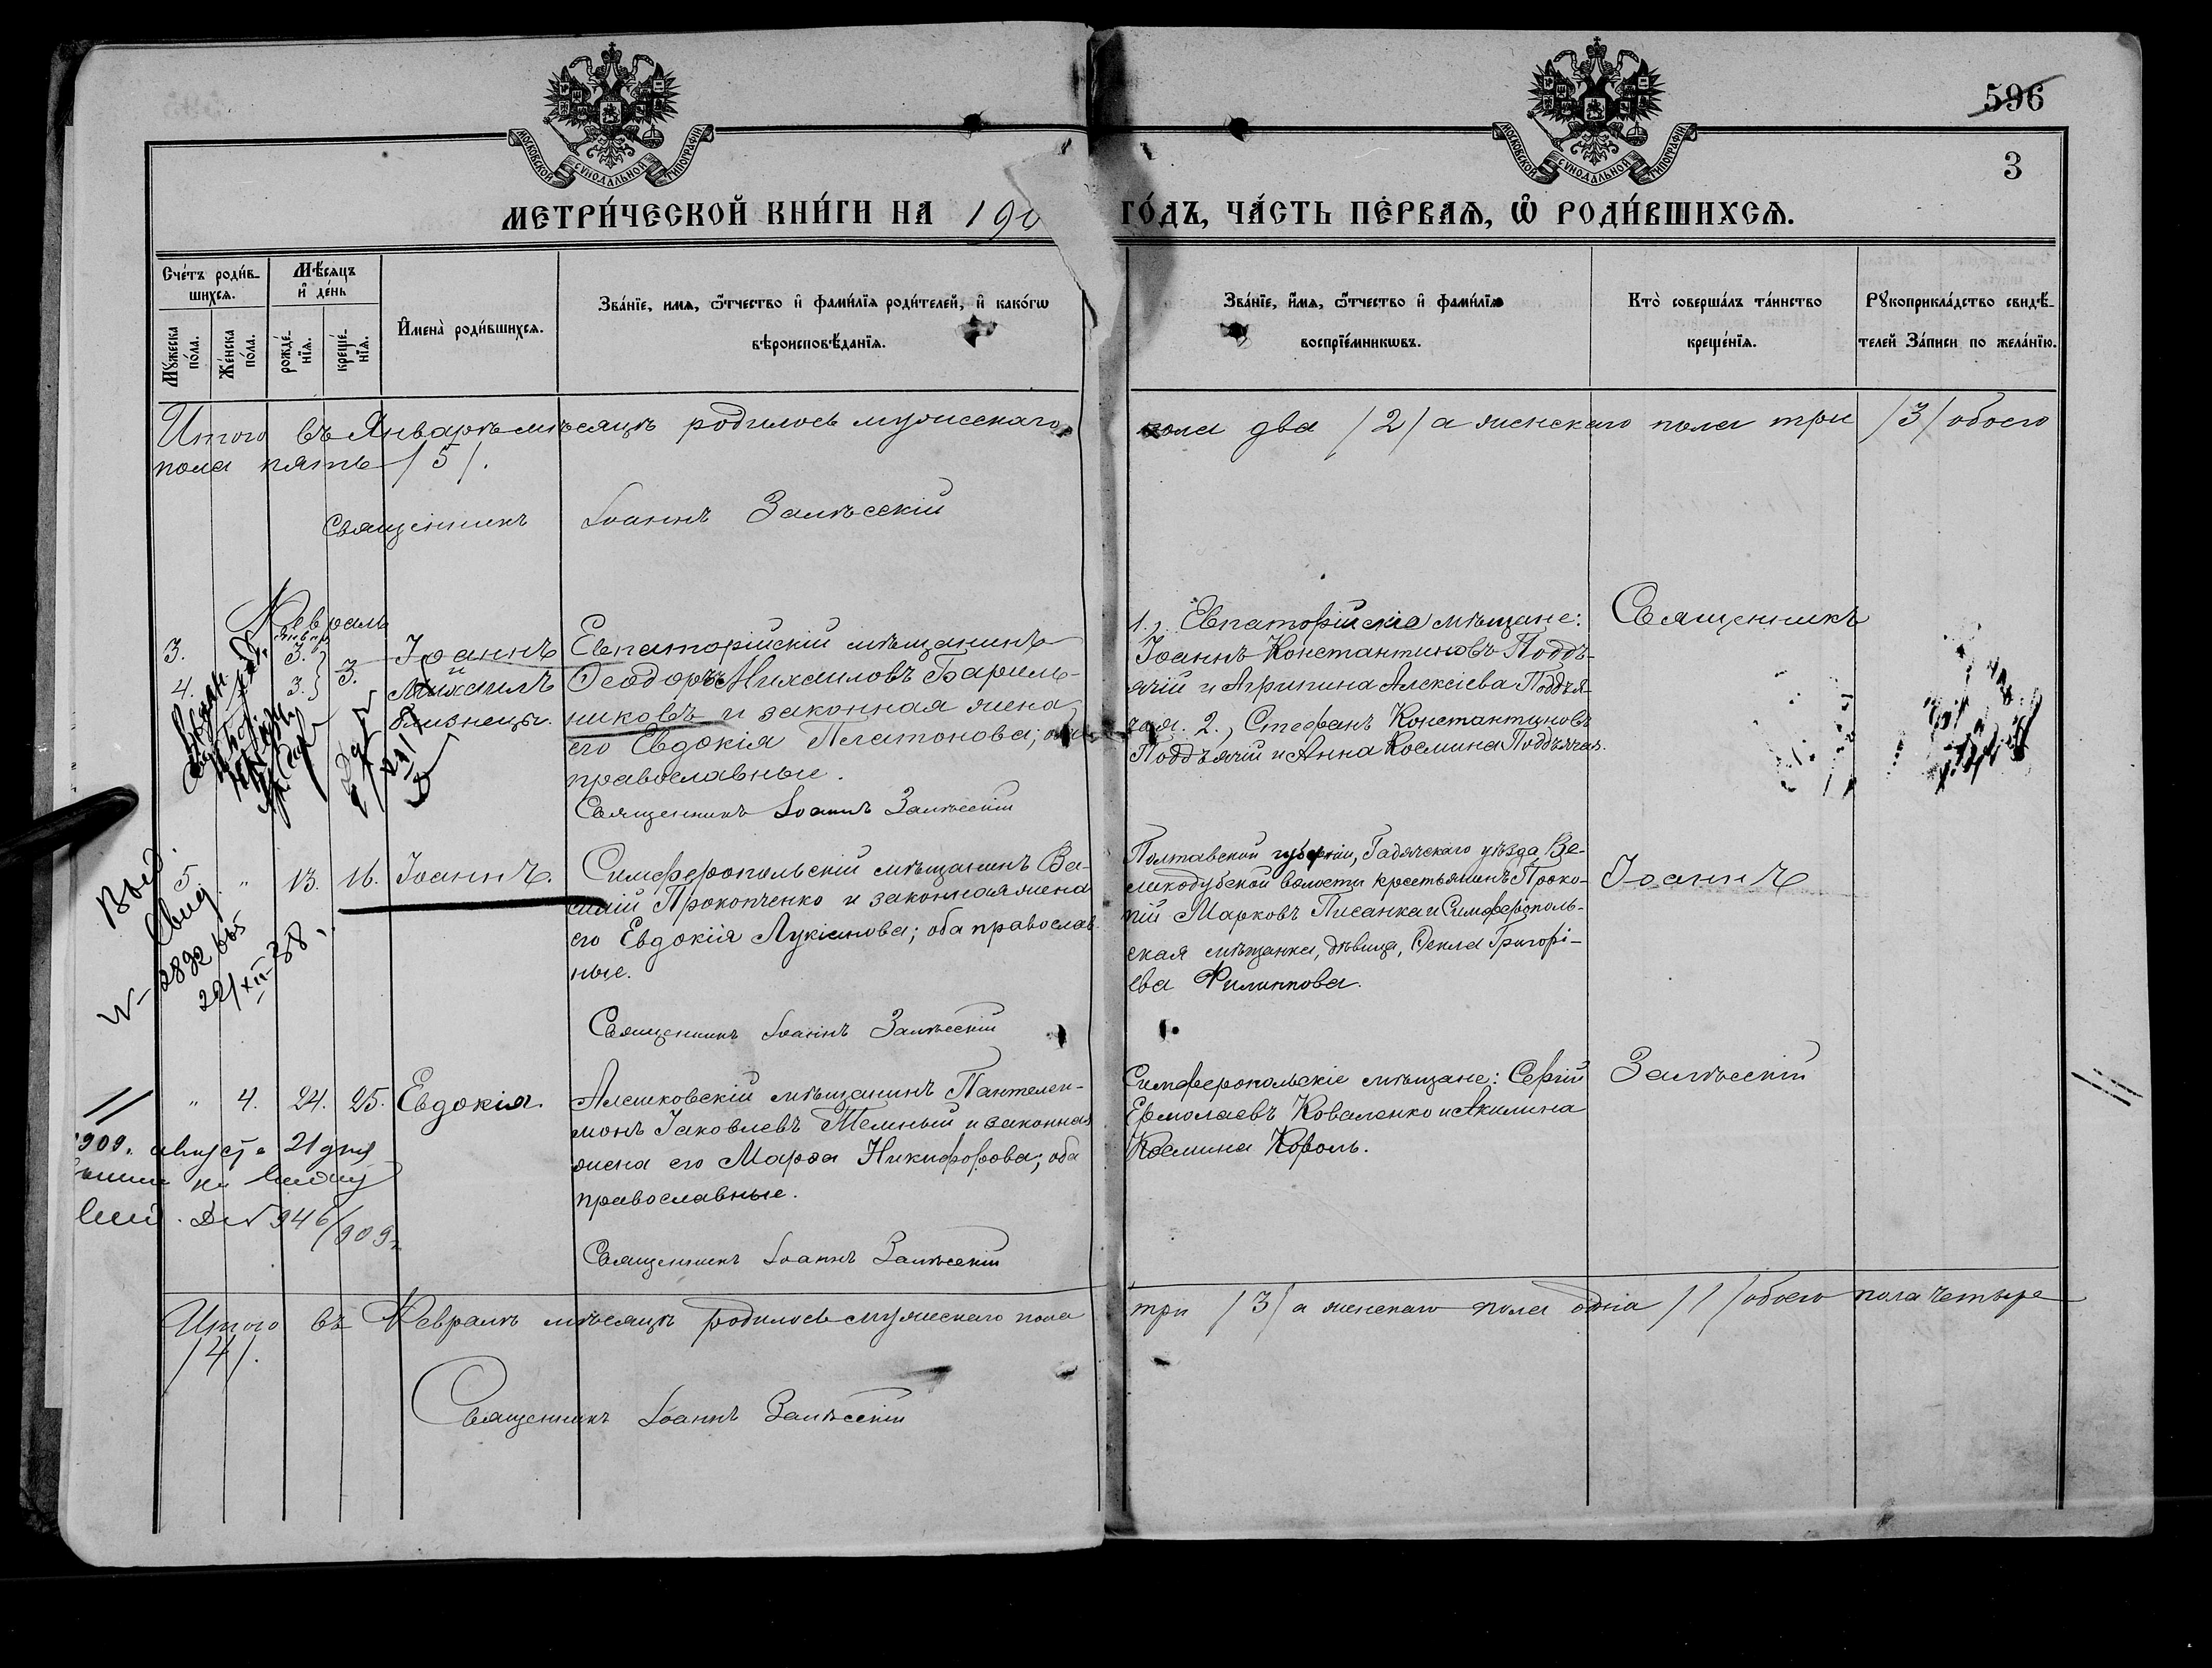 МОСКОВСКОЙ СѴНОДАЛЬНОЙ ТИПОГРАФІИ
МОСКОВСКОЙ СѴНОДАЛЬНОЙ ТИПОГРАФІИ
596
3
МЕТРИ́ЧЕСКОЙ КНИ́ГИ НА 190
ГО́ДЪ, ЧА́СТЬ ПЕ́РВАѦ, Ѽ РОДИ́ВШИХСѦ.
Сче́тъ роди́в-
шихсѧ.
Мѣ́сѧцъ
и҆ де́нь
Мꙋ́жеска по́ла.
Же́нска по́ла.
рожде́-
нїѧ.
креще́-
нїѧ.
И҆мена̀ роди́вшихсѧ.
Зва́нїе, имѧ, ѻ҆́тчество и҆ фами́лїѧ роди́телей, и҆ како́гѡ
вѣроисповѣ́данїѧ.
Зва́нїе, и҆́мѧ, ѻ҆́тчество и҆ фами́лїѧ
воспрїе́мникѡвъ.
Кто̀ соверша́лъ та́инство
креще́нїѧ.
Рꙋкоприкла́дство свидѣ́-
телей За́писи по жела́нїю.
Итого въ Январѣ мѣсяцѣ родилось мужескаго
пола два /2/ а женскаго пола три /3/ обоего
пола пять /5/.
Священникъ Іоаннъ Залѣсскій
Февраль
3. 3. 3. Іоаннъ
4. 3. и
Михаилъ
близнецы.
Евпаторійскій мѣщанинъ
Ѳеодоръ Михаиловъ Бариль-
никовъ и законная жена
его Евдокія Платонова; оба
православные.
Священникъ Іоаннъ Залѣсскій
1., Евпаторійскіе мѣщане:
Іоаннъ Константиновъ Поддъ-
ячій и Агрипина Алексіева Поддъя-
чая. 2., Стефанъ Константиновъ
Поддъячій и Анна Космина Поддъячая.
Священникъ
Выд.
Свид.
N-2892/665
22/XII-38.
5. " 13. 16. Іоаннъ.
Симферопольскій мѣщанинъ Ва-
силій Прокопченко и законная жена
его Евдокія Лукіанова; оба православ-
ные.
Священникъ Іоаннъ Залѣсскій
Полтавской губерніи, Гадячскаго уѣзда, Ве-
ликодубской волости крестьянинъ Проко-
пій Марковъ Писанка и Симферополь-
ская мѣщанка, дѣвица, Ѳекла Григорі-
ева Филиппова.
Іоаннъ
" 4. 24. 25. Евдокія.
909. августа 21 дня
946/909
Алешковскій мѣщанинъ Пантелеи-
монъ Іаковлевъ Темный и законная
жена его Марѳа Никифорова; оба
православные.
Священникъ Іоаннъ Залѣсскій
Симферопольскіе мѣщане: Сергій
Ермолаевъ Коваленко и Акилина
Космина Король.
Залѣсскій
Итого въ Февралѣ мѣсяцѣ родилось мужескаго пола
три /3/ а женскаго пола одна /1/ обоего пола четыре
/4/.
Священникъ Іоаннъ Залѣсскій